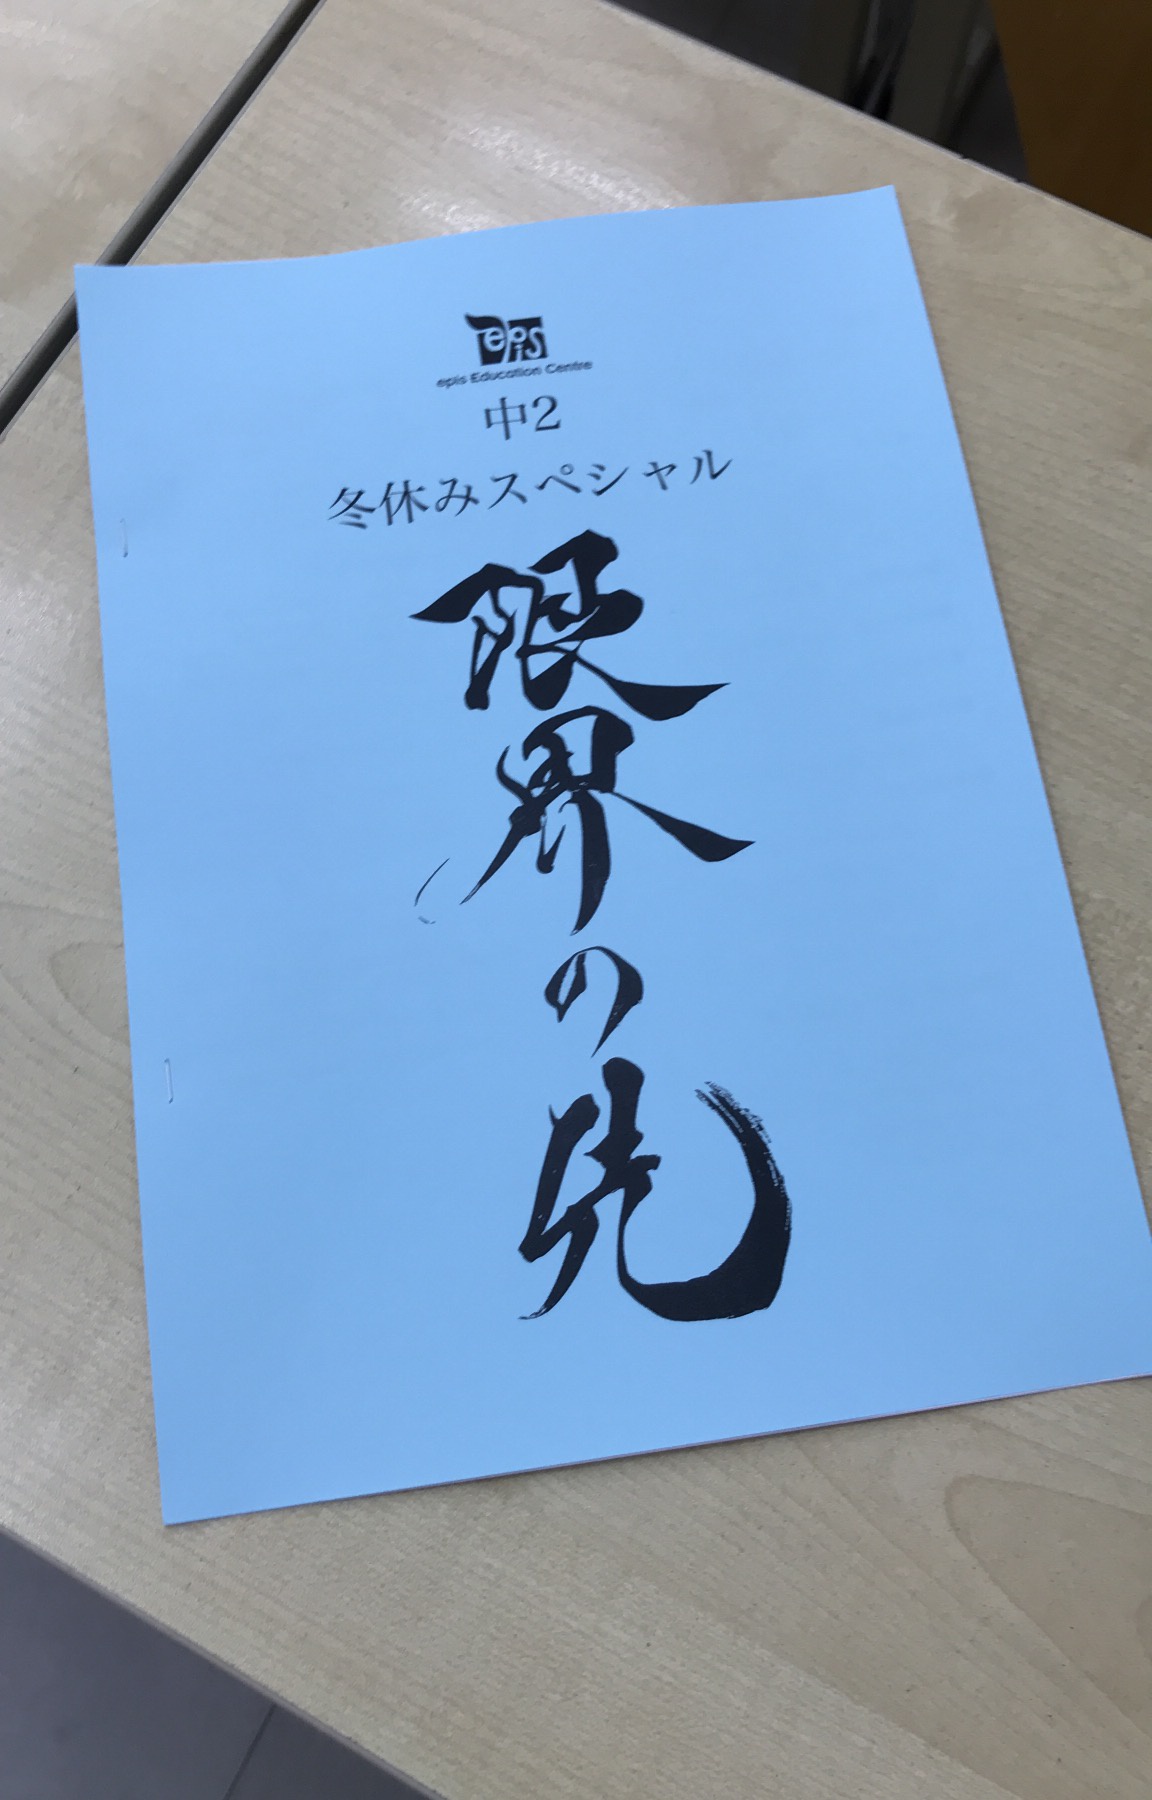 epis
epis Education Centre
中2
冬休みスペシャル
限界の先